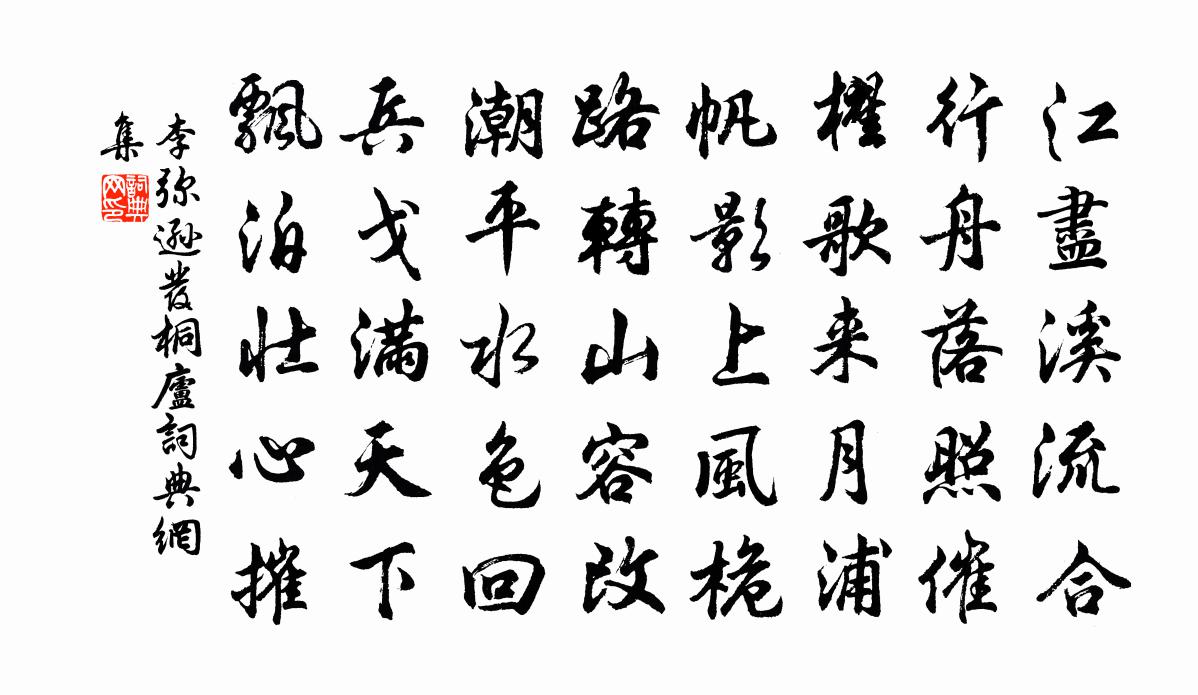 江盡溪流合
行舟落照催
櫂歌来月浦
帆影上風桅
路轉山容改
潮平水色回
兵戈滿天下
飄泊壯心摧
李弥遜發桐廬詞典網
集
詞典
网印